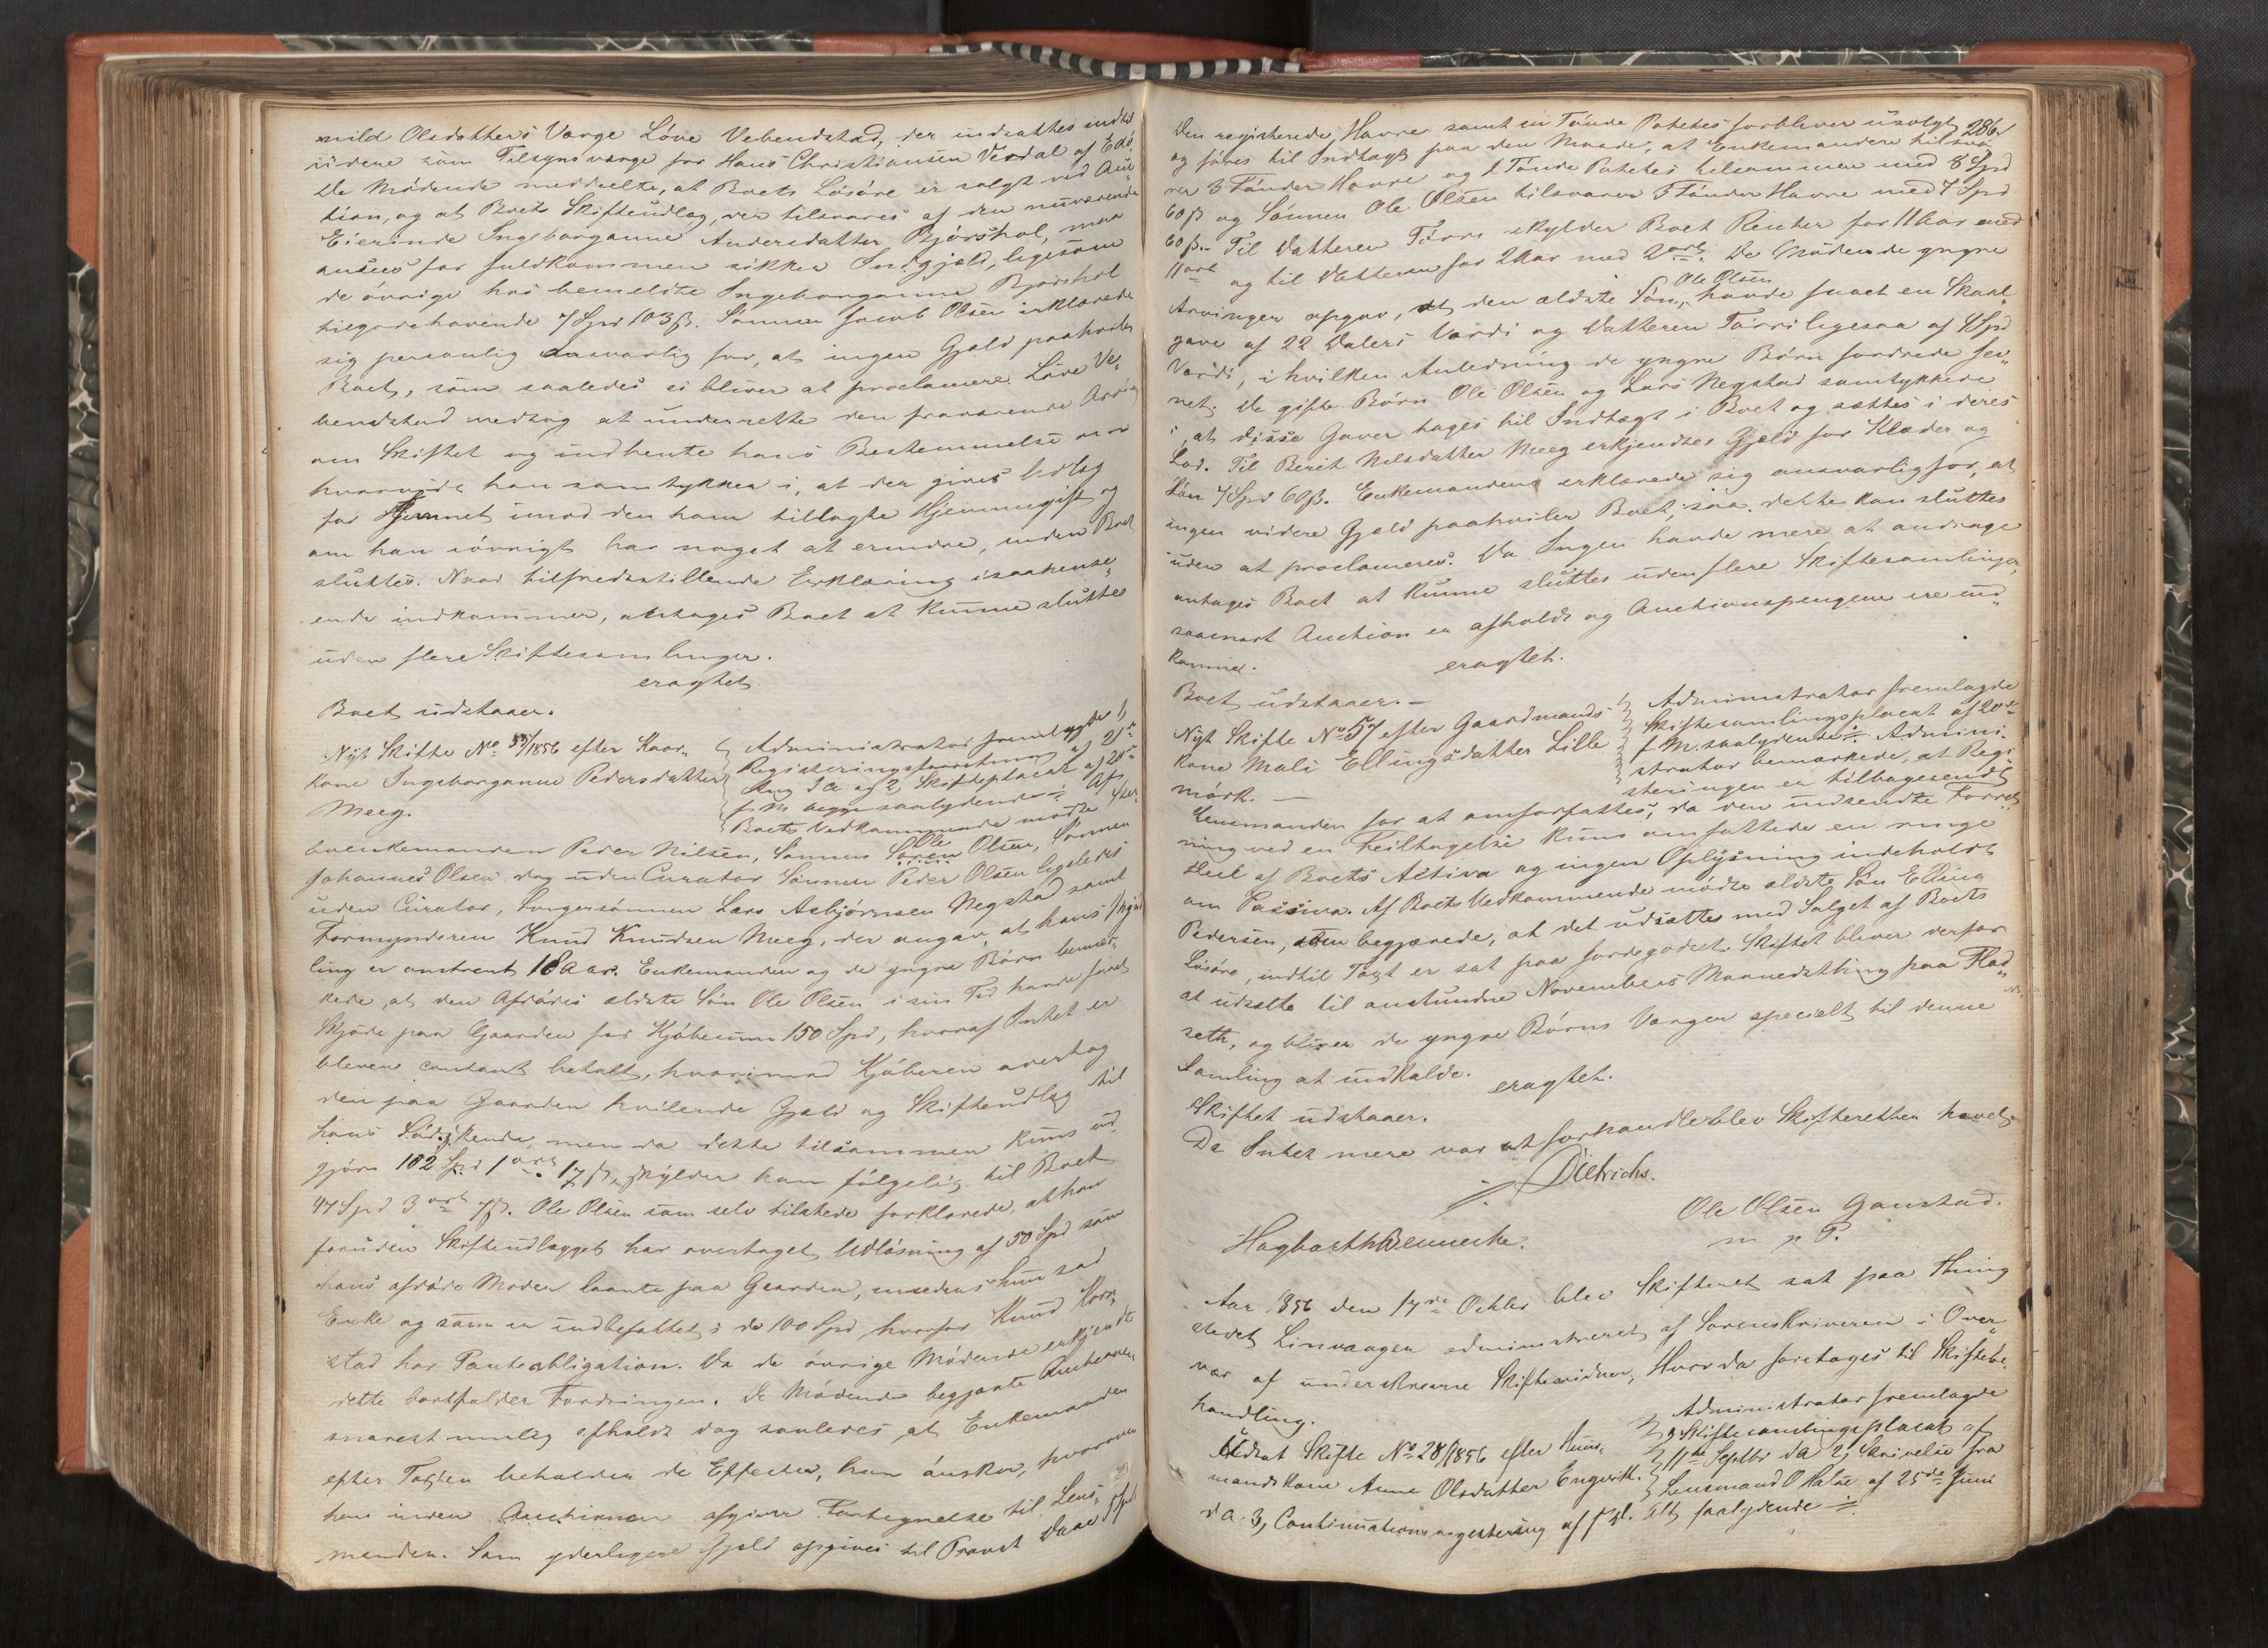 mild Olsdatters Værge Löve Vebenstad, der indsattes indtil
videre som Tilsynsværge for Hans Christiansen Verdal af Edö.
De Mödende meddeelte, at Boets Lösöre er solgt ved Auc„
tion, og at Boets Skifteudlæg, der tilsvares af den nuværende
Eierinde Ingeborganna Andersdatter Bjórshol, maa
ansees for fuldkommen sikker Indgjæld, ligesom
de övrige hos bemeldte Ingeborganna Bjórshol
tilgodehavende 7 Spd 103 ß. Sönnen Jacob Olsen erklærede
sig personlig ansvarlig for, at ingen Gjæld paahviler
Boet, som saaledes ei bliver at proclamere. Löve Ve„
benstad medtog at underrette den fraværende Arving
om Skiftet og indhente hans Bestemmelse om
hvorvidt han samtykker i, at der gives Udlæg
for Hjemmet imod den ham tillagte Hjemmegift og
om han iövrigt har noget at erindre, inden Boet
sluttes. Naar tilfredsstillende Erklæring isaahense„
ende indkommer, antages Boet at kunne sluttes
uden flere Skiftesamlinger.
eragtet
Boet udstaaer.
Nyt Skifte No 55/1856 efter Kaar„
kone Ingeborganna Pedersdatter
Meeg.
Administrator fremlagde 1,
Registreringsforretning af 21de
Aug d A og 2, Skifteplacat af 20de
f M begge saalydende ÷ Af
Boets Vedkommende mödte Efter
Ole
boenkemanden Peder Nilsen, Sönnen Sören Olsen, Sönnen
Johannes Olsen dog uden Curator Sönnen Peder Olsen ligeledes
uden Curator, Svigersönnen Lars Asbjörnsen Megstad samt
Formynderen Knud Knudsen Meeg, der angav, at hans Mynd
ling er omtrent 18 Aar. Enkemanden og de yngre Börn bemær„
kede, at den Afdödes ældste Sön Ole Olsen i sin Tid havde faaet
Skjöde paa Gaarden for Kjöbesum 150 Spd, hvoraf Intet er
bleven contant betalt, hvorimod Kjöberen overtog
den paa Gaarden hvilende Gjæld og Skifteudlæg til
hans Södskende, men da dette tilsammen kuns ud„
gjör 102 Spd 1 ort 17 ß, skylder han fölgelig til Boet
47 Spd 3 ort 7 ß. Ole Olsen som selv tilstede forklarede, at han
foruden Skifteudlægget har overtaget Udlösning af 50 Spd som
hans afdöde Moder laante paa Gaarden, imedens hun sad
Enke og som er indbefattet i de 100 Spd, hvorfor Knud Kors„
stad har Panteobligation. Da de övrige Mödende erkjendte
dette bortfalder Fordringen. De Mödende begjærte Auctionen
snarest mulig afholdt dog saaledes, at Enkemanden
efter Taxten beholder de Effecter, han önsker, hvorover
han inden Auctionen afgiver Fortegnelse til Lens„
manden. Som yderligere Gjæld opgives til Provst Daae 5 Spd
286
Den registerede Havre samt en Tönde Potetes forbliver usolgt
og föres til Indtægt paa den Maade, at Enkemanden tilsva„
rer 3 Tönder Havre og 1 Tönde Potetes tilsammen med 8 Spd
60 ß og Sönnen Ole Olsen tilsvarer 5 Tönder Havre med 7 Spd
60 ß. Til Datteren Törri skylder Boet Renter for 11 Aar med
11 ort og til Datteren for 2 Aar med 2 ort. De Mödende yngre
Ole Olsen
Arvinger opgav, at den ældste Sön, havde faaet en Skaal„
gave af 22 Dalers Værdi og Datteren Törri ligesaa af 4 Spd
Værdi, i hvilken Anledning de yngre Börn fordrede Jev„
net. De gifte Börn Ole Olsen og Lars Megstad samtykkede
i, at disse Gaver tages til Indtægt i Boet og sættes i deres
Lod. Til Berit Nilsdatter Meeg erkjendtes Gjæld for Klæder og
Lön 7 Spd 60 ß. Enkemanden erklærede sig ansvarlig for, at
ingen videre Gjæld paahviler Boet, saa dette kan sluttes
uden at proclameres. Da Ingen havde mere at andrage
antages Boet at kunne sluttes uden flere Skiftesamlinger,
saasnart Auction er afholdt og Auctionspengene ere ind„
komne.
eragtet.
Boet udstaaer. —
Nyt Skifte No 57 efter Gaardmands
kone Mali Ellingsdatter Lille
mörk. —
Administrator fremlagde
Skiftesamlingsplacat af 20de
f. M. saalydende ÷ Admini„
strator bemærkede, at Regi„
steringen er tilbagesendt
Lensmanden for at omforfattes, da den indsendte Forret„
ning ved en Feiltagelse kuns omfattede en ringe
Deel af Boets Activa og ingen Oplysning indeholdt
om Passiva. Af Boets Vedkommende mödte ældste Sön Elling
Pedersen, som begjærede, at det udsættes med Salget af Boets
Lösöre, indtil Taxt er sat paa Jordegodset. Skiftet bliver derfor
at udsætte til anstundne Novembers Maanedsthing paa Flad„
seth, og bliver de yngre Börns Værger specielt til denne
Samling at indkalde.
eragtet.
Skiftet udstaaer.
Da Intet mere var at forhandle blev Skifteretten hævet
Dietrichs.
Ole Olsen Gaustad.
m p P.
Hagbarth Bennecke.
Aar 1856 den 17de Octbr blev Skifteret sat paa Thing
stedet Linvaagen administreret af Sorenskriveren i Over„
vær af underskrevne Skiftevidner, Hvor da foretoges til Skiftebe„
handling.
Udsat Skifte No 28/1856 efter Huus„
mandskone Anne Olsdatter Engvik.
Administrator fremlagde
1, Skiftesamlingsplacat af
11te Septbr d A 2, Skrivelse fra
Lensmand O Halse af 25de Juni
d A. 3, Continuationsregistering af f D. alt saalydende ÷